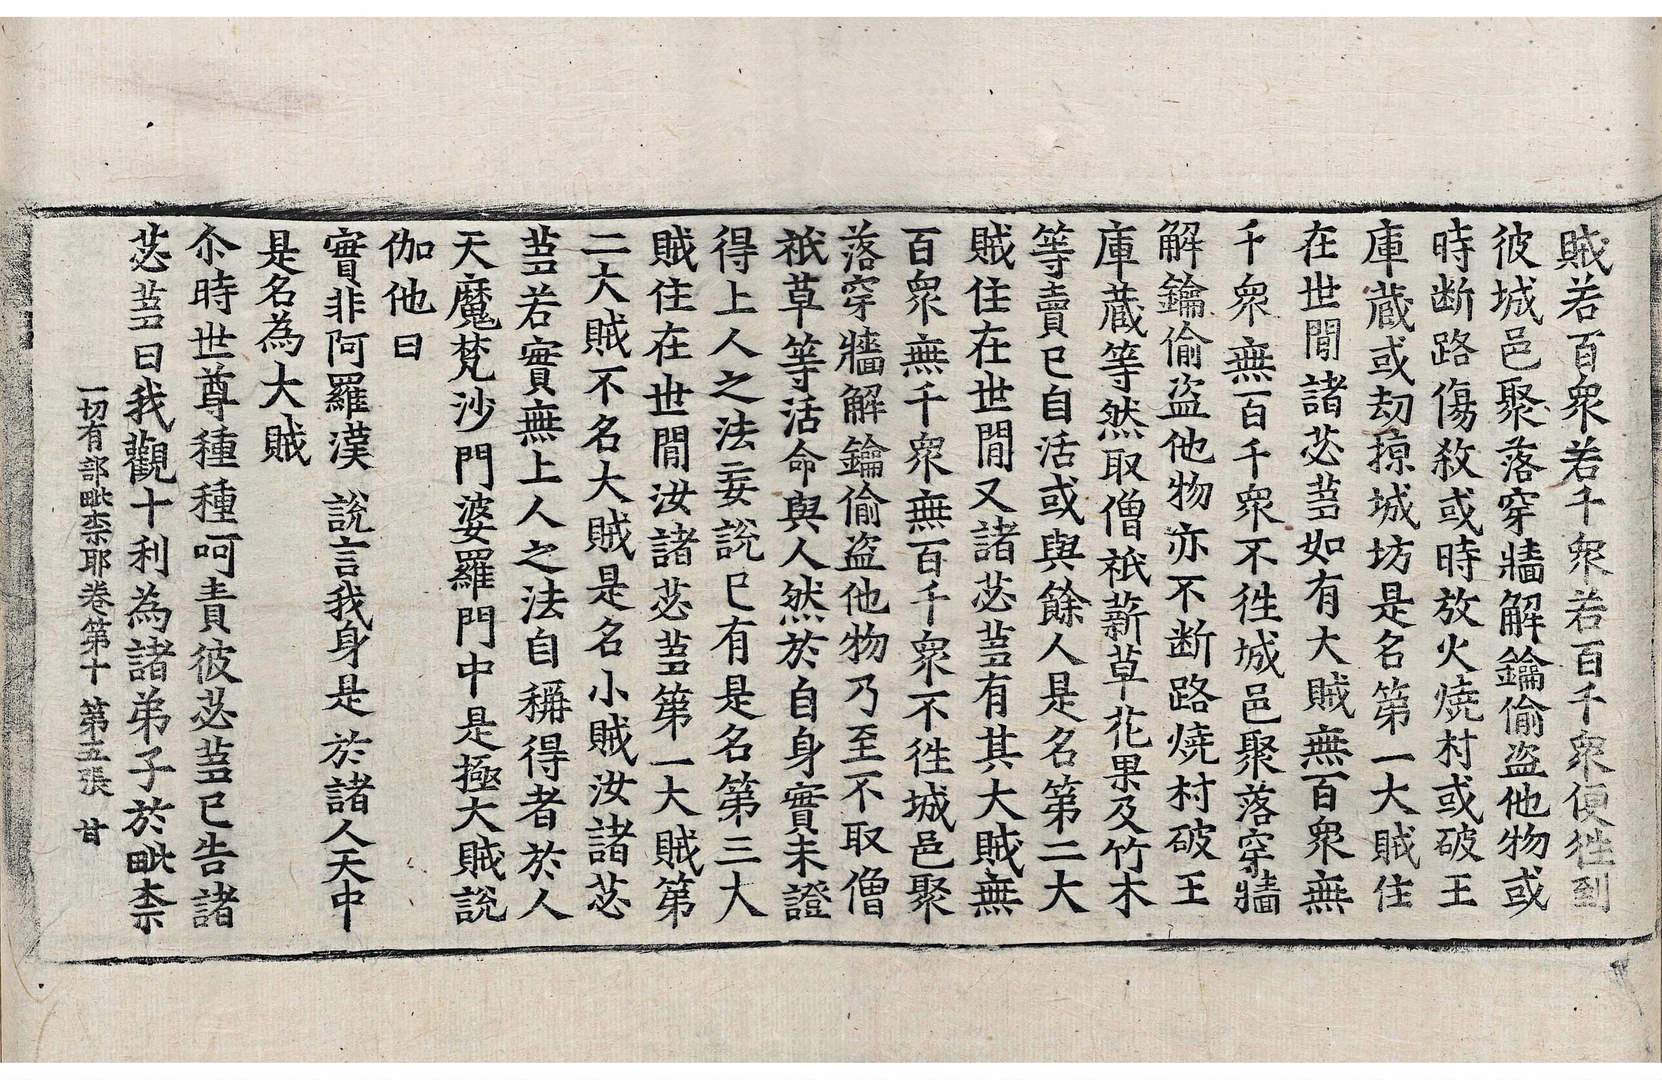 賊若百衆若千衆若百千衆便徃到
彼城邑聚落穿牆解鑰偷盗他物或
時断路傷敎或時放火燒村或破王
庫藏或刧掠城坊是名第一大賊住
在世閒諸苾蒭如有大賊無百衆無
千衆無百千衆不徃城邑聚落穿牆
解鑰偷盗他物亦不断路燒村破王
庫藏等然取僧祇薪草花果及竹木
等賣已自活或與餘人是名第二大
賊住在世閒又諸苾蒭有其大賊無
百衆無千衆無百千衆不徃城邑聚
落穿牆解鑰偷盗他物乃至不取僧
祇草等活命與人然於自身實未證
得上人之法妄說已有是名第三大
賊住在世閒汝諸苾蒭第一大賊第
二大賊不名大賊是名小賊汝諸苾
蒭若實無上人之法自稱得者於人
天魔梵沙門婆羅門中是極大賊說
伽他曰
實非阿羅漢 說言我身是於諸人天中
是名為大賊
尒時世尊種種呵責彼苾蒭已告諸
苾蒭曰我觀十利為諸弟子於毗柰
一切有部毗柰耶卷第十 第五張 甘